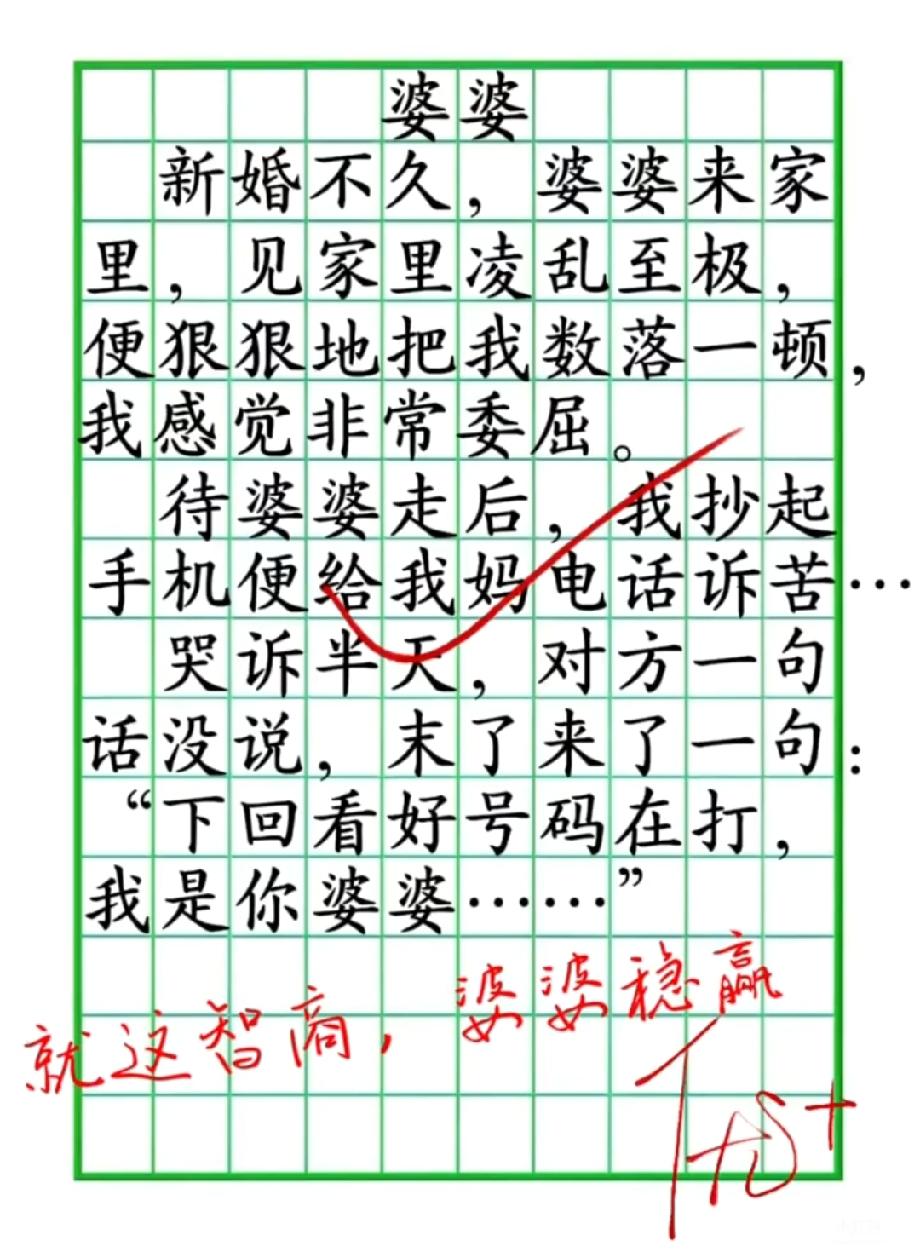 婆婆
新婚不久，婆婆来家
里，见家里凌乱至极，
便狠狠地把我数落一顿，
我感觉非常委屈。
待婆婆走后，我抄起
手机便给我妈电话诉苦…
哭诉半天，对方一句
话没说，末了来了一句：
“下回看好号码在打，
我是你婆婆……”
就这智商，婆婆稳赢
优+